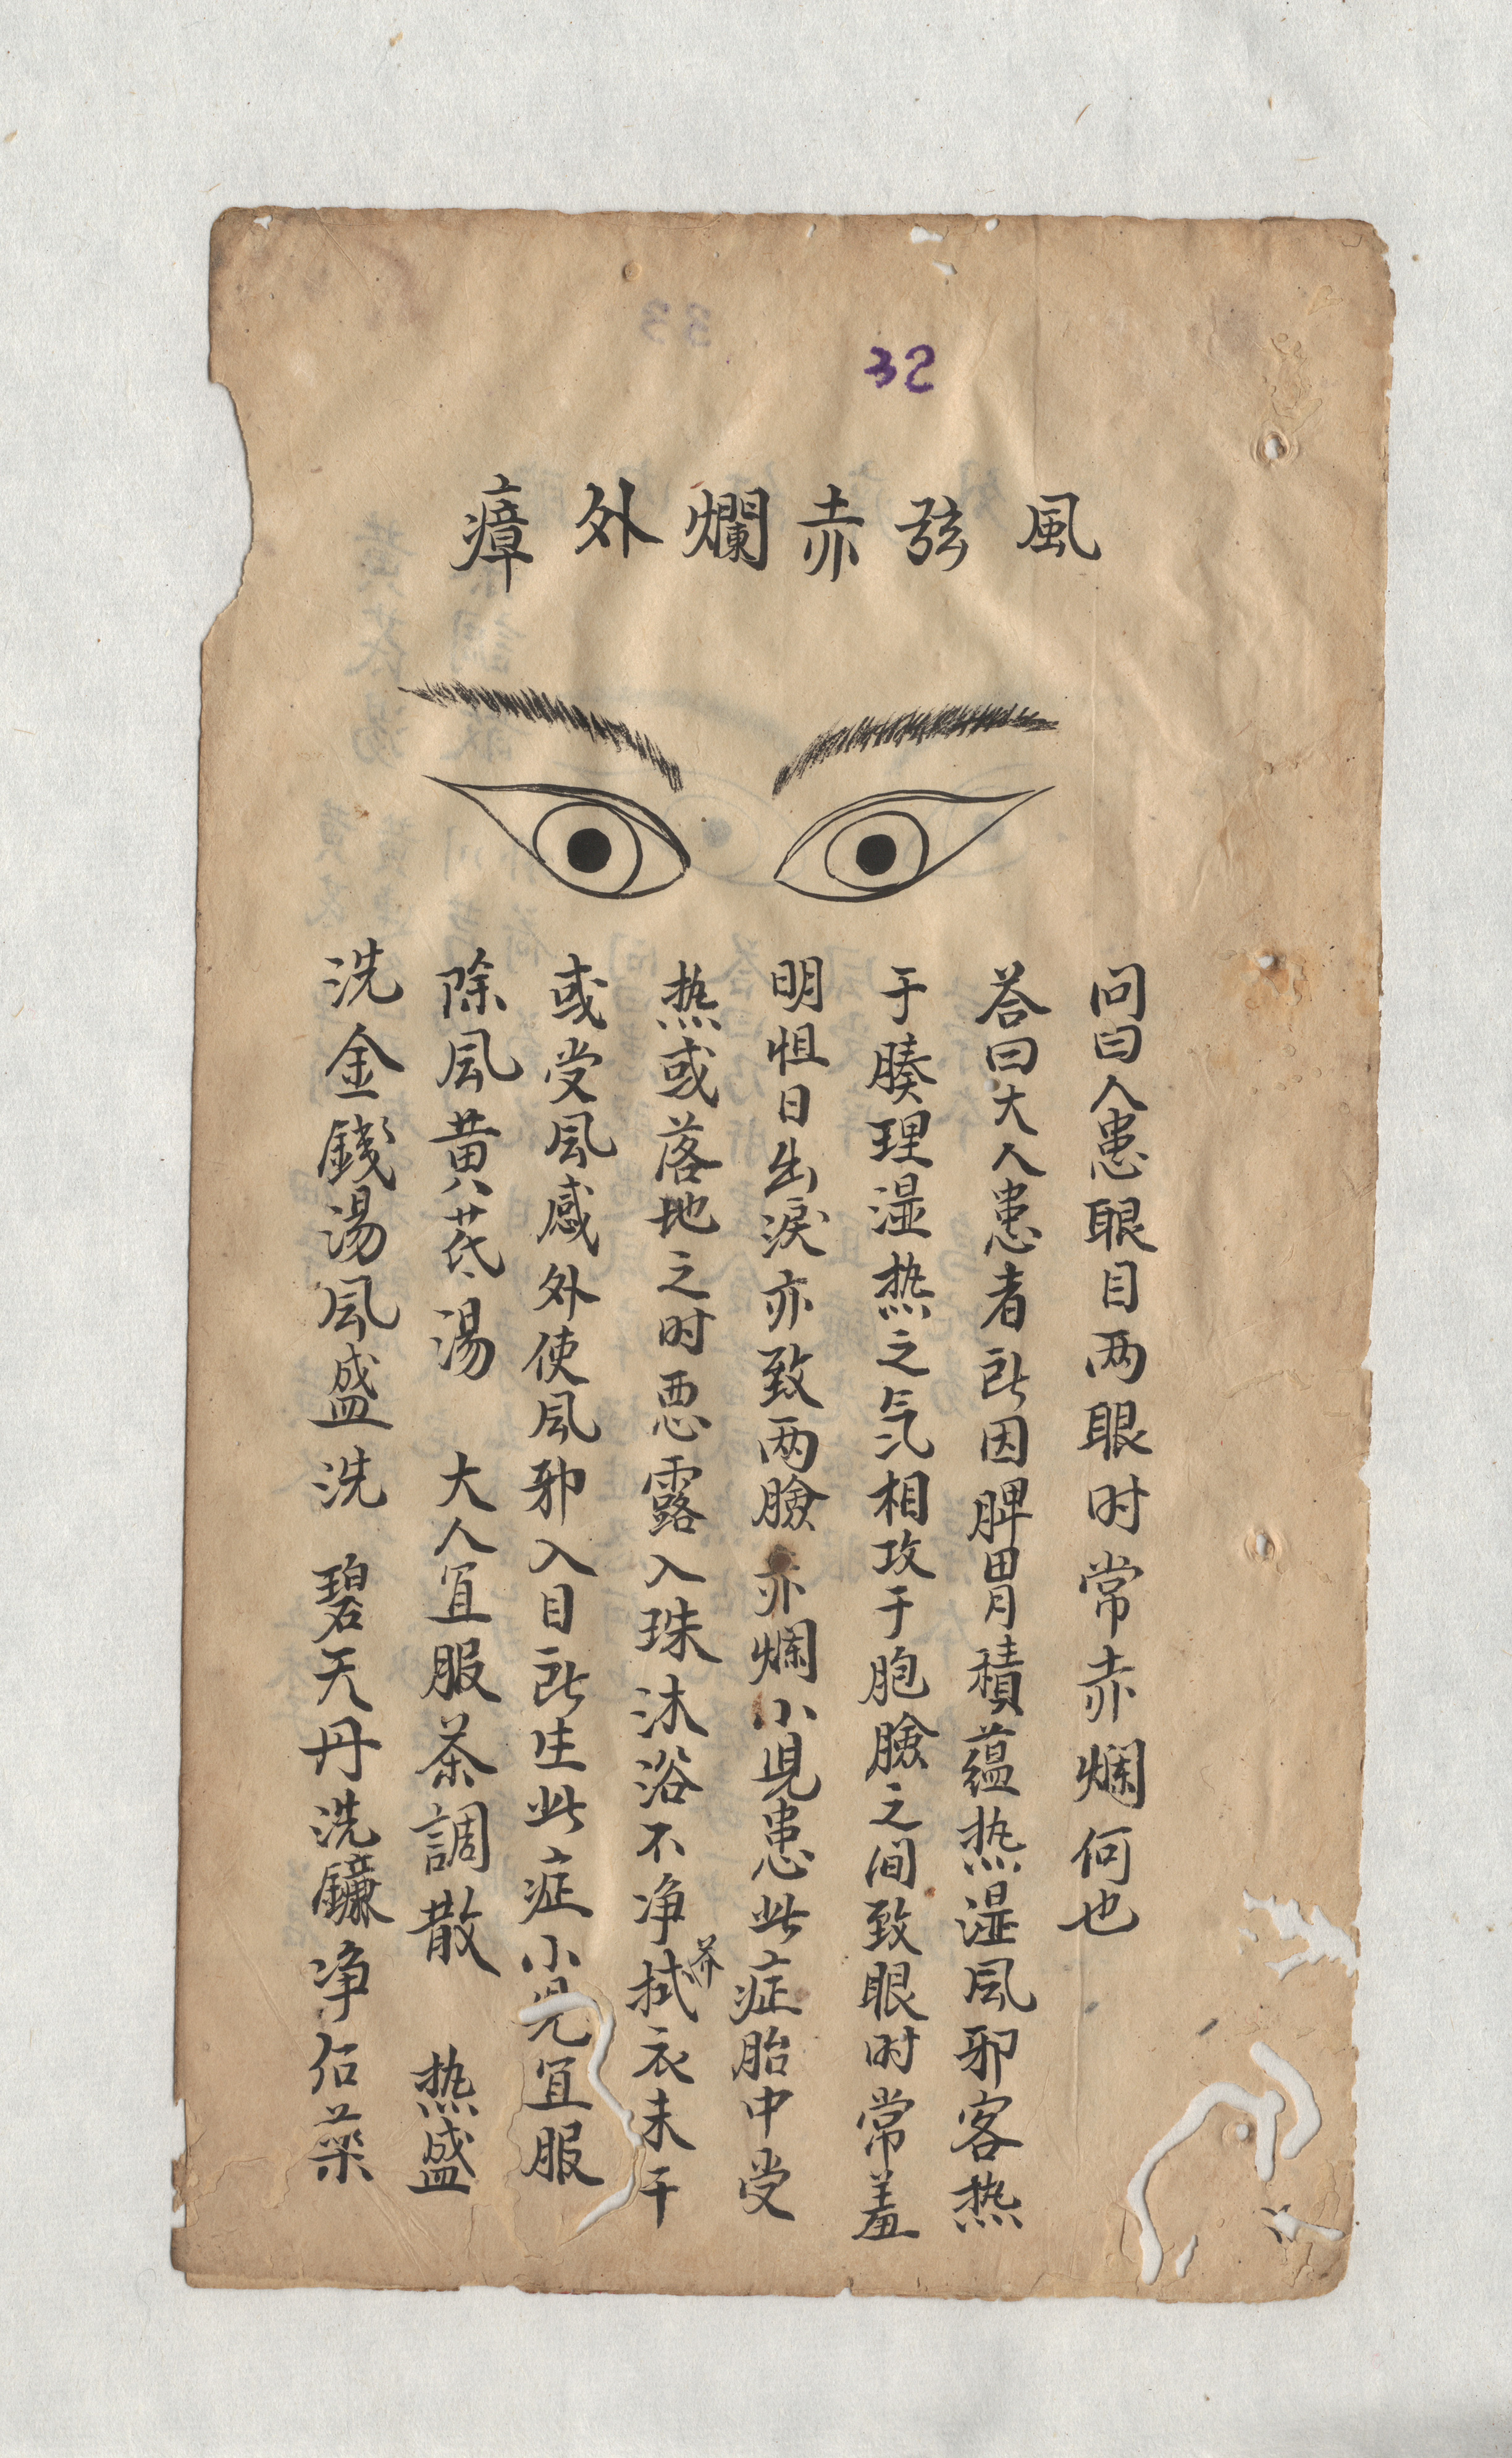 32
風弦赤爛外瘴
问曰人患眼目两眼时常赤烂何也
荅曰大人患者所因脾胃積蕴热湿风邪客热
于腠理湿热之気相攻于胞臉之间致眼时常羞
明怛日出淚亦致两臉亦烂小児患此症胎中受
热或落地之时悪露入珠沐浴不净拭衣未干
芥
或受风感外使风邪入目所生此症小児宜服
除风黄芪湯　大人宜服茶調散　热盛
洗金錢湯风盛洗　碧天丹洗鐮净佔薬